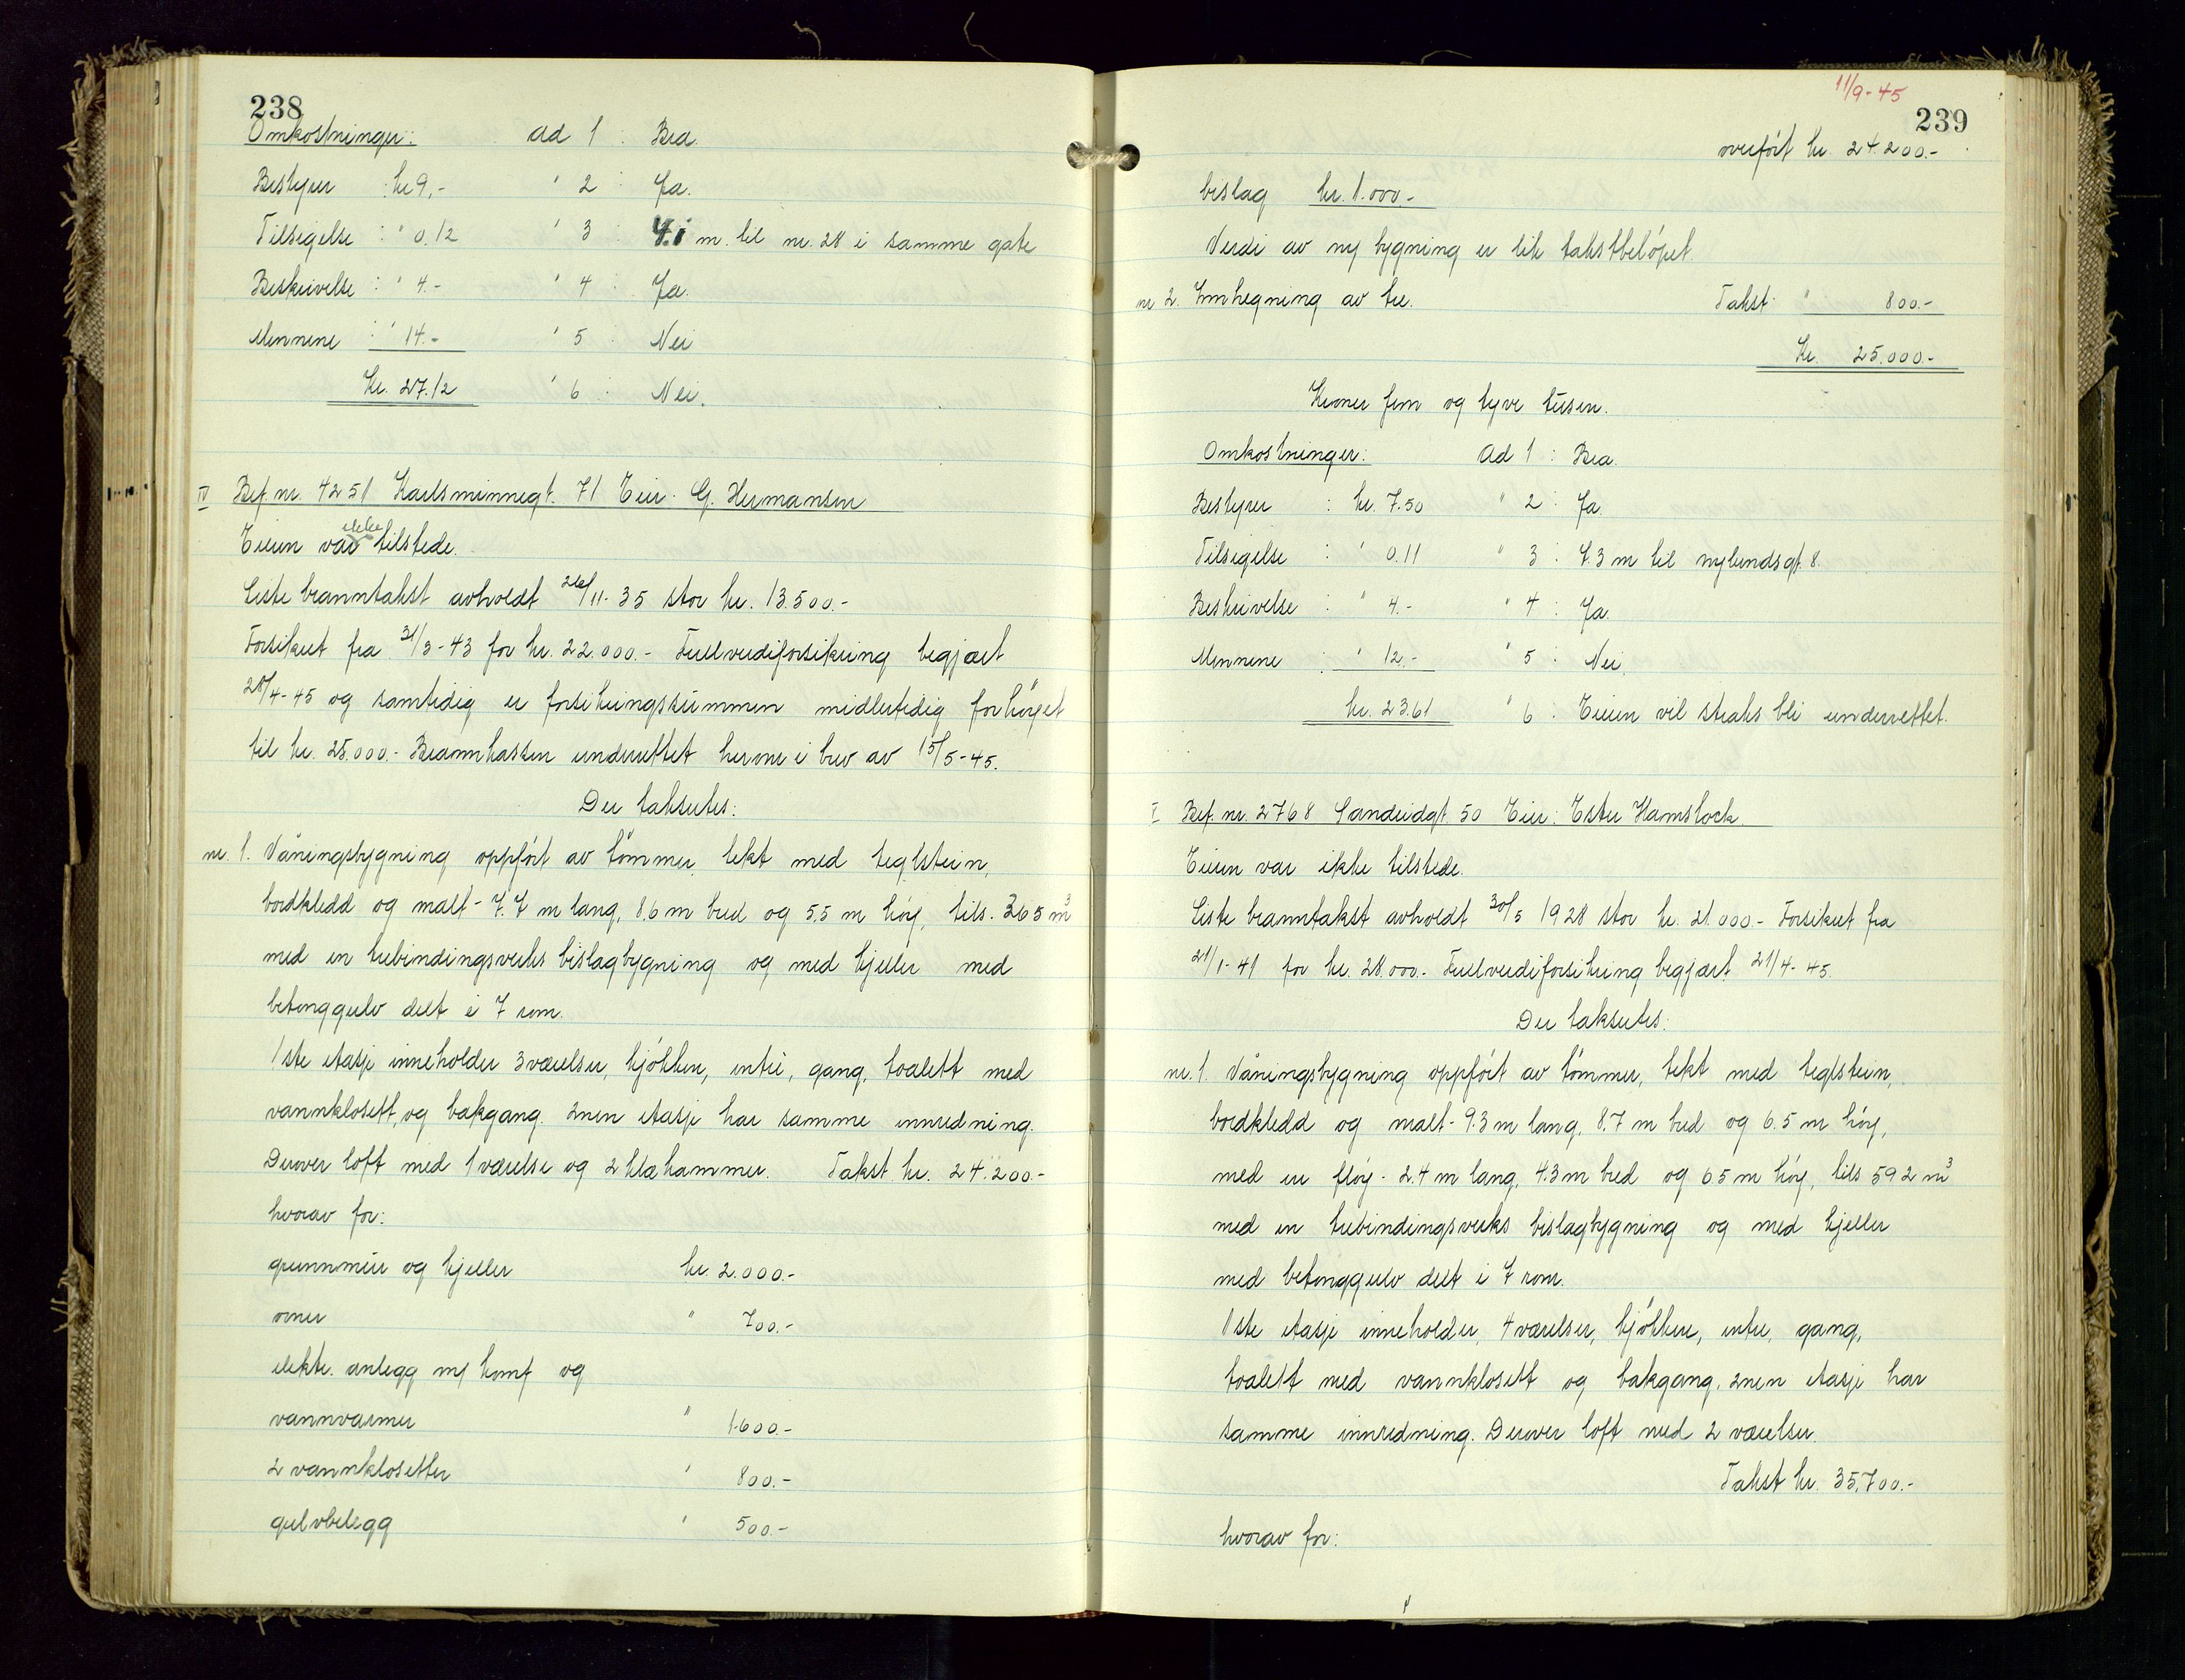 238
Omkostninger: ad 1 : Bra.
Bestyrer : kr 9,- " 2 : Ja.
Tilsigelse : " 0.12 " 3 : 4.1 m. til nr. 28 i samme gate
Beskrivelse : " 4.- " 4 : Ja.
Mennene : " 14.- " 5 : Nei
Kr. 27.12 " 6 : Nei.
IV Bef. nr. 4251 Karlsminnegt. 71 Eier: G. Hermansen
Eieren var ikke tilstede.
Siste branntakst avholdt 26/11-35 stor kr. 13.500.-
Forsikret fra 31/3-43 for kr. 22.000.- Fullverdiforsikring begjært
28/4-45 og samtidig er forsikringssummen midlertidig forhöyet
til kr. 25.000.- Brannkassen underrettet herom i brev av 15/5-45.
Der takseres:
nr. 1. Våningsbygning oppfört av tömmer, tekt med teglstein,
bordkledd og malt - 7.7 m lang, 8,6 m bred og 5,5 m höy, tils. 365 m³
med en trebindingsverks bislagbygning og med kjeller med
betonggulv delt i 7 rom.
1ste etasje inneholder 3 værelser, kjökken, entré, gang, toalett med
vannklosett, og bakgang. 2nen etasje har samme innredning.
Derover loft med 1 værelse og 2 klækammer. Takst kr. 24.200.-
hvorav for:
grunnmur og kjeller kr. 2.000.-
ovner " 700.-
elektr. anlegg m/ komf og
vannvarmer " 1.600.-
2 vannklosetter " 800.-
gulvbelegg " 500.-
11/9-45
239
overfört kr. 24.200.-
bislag kr. 1.000.-
Verdi av ny bygning er lik takstbelöpet.
nr 2. Innhegning av tre. Takst " 800.-
Kr. 25.000.-
Kroner fem og tyve tusen.
Omkostninger: Ad 1 : Bra.
Bestyrer : kr. 7.50 " 2 : Ja.
Tilsigelse : " 0.11 " 3 : 7.3 m til nylundsgt. 8.
Beskrivelse : " 4.- " 4 : Ja
Mennene : " 12.- " 5 : Nei.
kr. 23.61 " 6 : Eieren vil straks bli underrettet.
V Bef. nr. 2768 Sandeidgt. 50 Eier: Ester Hamslock.
Eieren var ikke tilstede.
Siste branntakst avholdt 30/5 1928 stor kr. 21.000.- Forsikret fra
21/1-41 for kr. 28.000.- Fullverdiforsikring begjært 21/4-45.
Der takseres:
nr. 1. Våningsbygning oppfört av tömmer, tekt med teglstein,
bordkledd og malt - 9.3 m lang, 8.7 m bred og 6.5 m höy,
med en flöy - 2.4 m lang, 4.3 m bred og 6.5 m höy, tils 592 m³
med en trebindingsverks bislagbygning og med kjeller
med betonggulv delt i 7 rom.
1ste etasje inneholder, 4 værelser, kjökken, entre, gang,
toalett med vannklosett og bakgang. 2nen etasje har
samme innredning. Derover loft med 2 værelser.
Takst kr. 35.700.-
hvorav for: